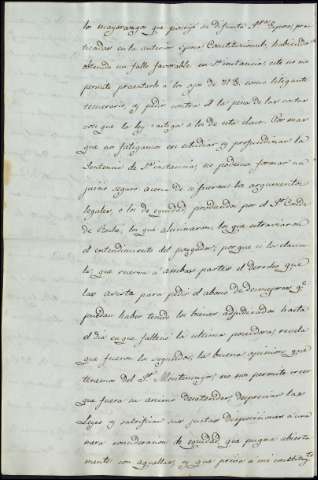 los mayorazgos que poseyó su difunto
ticadas en la anterior época Constitucional, habiendo
obtenido un fallo favorable en 1ª instancia, esto no
permite presentarlo á los ojos de V.S. como litigante
temerario, y pedir contra él la pena de las costas
con que la ley castiga á los de esta clase. Por mas
que nos fatiguemos en estudiar y profundizar la
Sentencia de 1ª instancia, no podemos formar un
juicio seguro acerca de si fueron los argumentos
legales, ó los de equidad producidos por el Sr. Conde
de los que alucinaron, los que estraviaron
el entendimiento del juzgador; porque si la clausula
la que reserva á ambas partes el derecho que
las asista para pedir el abono de desmejoras qe.
puedan haber tenido los bienes adjudicados hasta
el dia en que falleció la ultima poseedora, revela
que fueron los segundos, la buena opinion que
tenemos del Sr. no nos permite creer
que fuera su animo desatender, despreciar las
Leyes y sacrificar sus justas disposiciones á una
mera consideracion de equidad que pugna abierta
mente con aquellas, y que ponia á mi